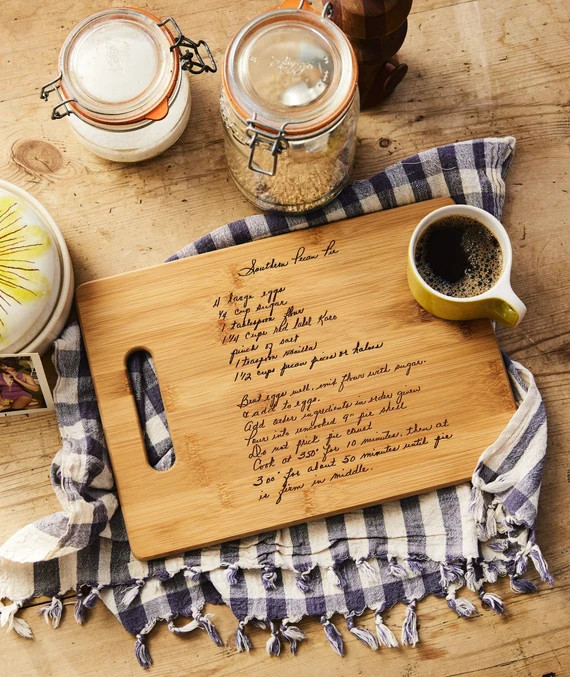 Southern Pecan Pie
4 large eggs
3/4 cup sugar
1 tablespoon flour
1 1/4 cups red label Karo
pinch of salt
1 teaspoon vanilla
1 1/2 cups pecan pieces or halves
Beat eggs well, mix flour with sugar.
& add to eggs.
Add other ingredients in order given
Pour into uncooked 9" pie shell
Do not prick pie crust
Cook at 350° for 10 minutes, then at
300° for about 50 minutes until pie
is firm in middle.